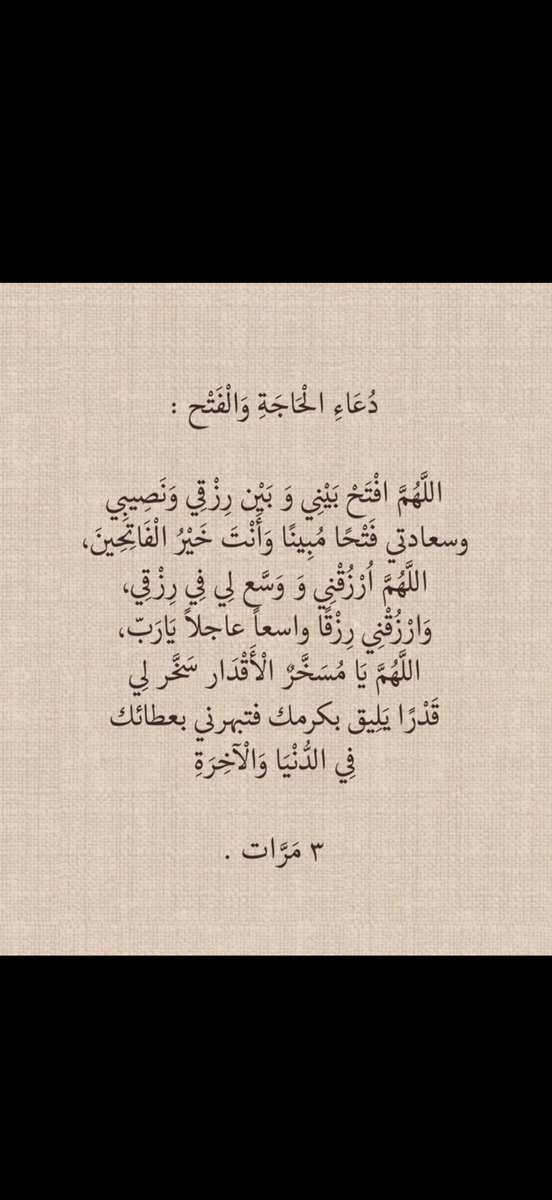 دُعَاءِ الْحَاجَةِ وَالْفَتْح :
اللَّهُمَّ افْتَحْ بَيْنِي وَ بَيْن رِزْقِي وَنَصِيبِي
وسعادتي فَتْحًا مُبِينًا وَأَنْتَ خَيْرُ الْفَاتِحِينَ،
اللَّهُمَّ اُرْزُقْنِي وَ وَسَّع لِي فِي رِزْقِي،
وَارْزُقْنِي رِزْقًا واسعاً عاجلاً يَارَبّ،
اللَّهُمَّ يَا مُسَخَّرٌ الْأَقْدَار سَخَّر لِي
قَدْرًا يَلِيق بكرمك فتبهرني بعطائك
فِي الدُّنْيَا وَالْآخِرَةِ
٣ مَرَّات .